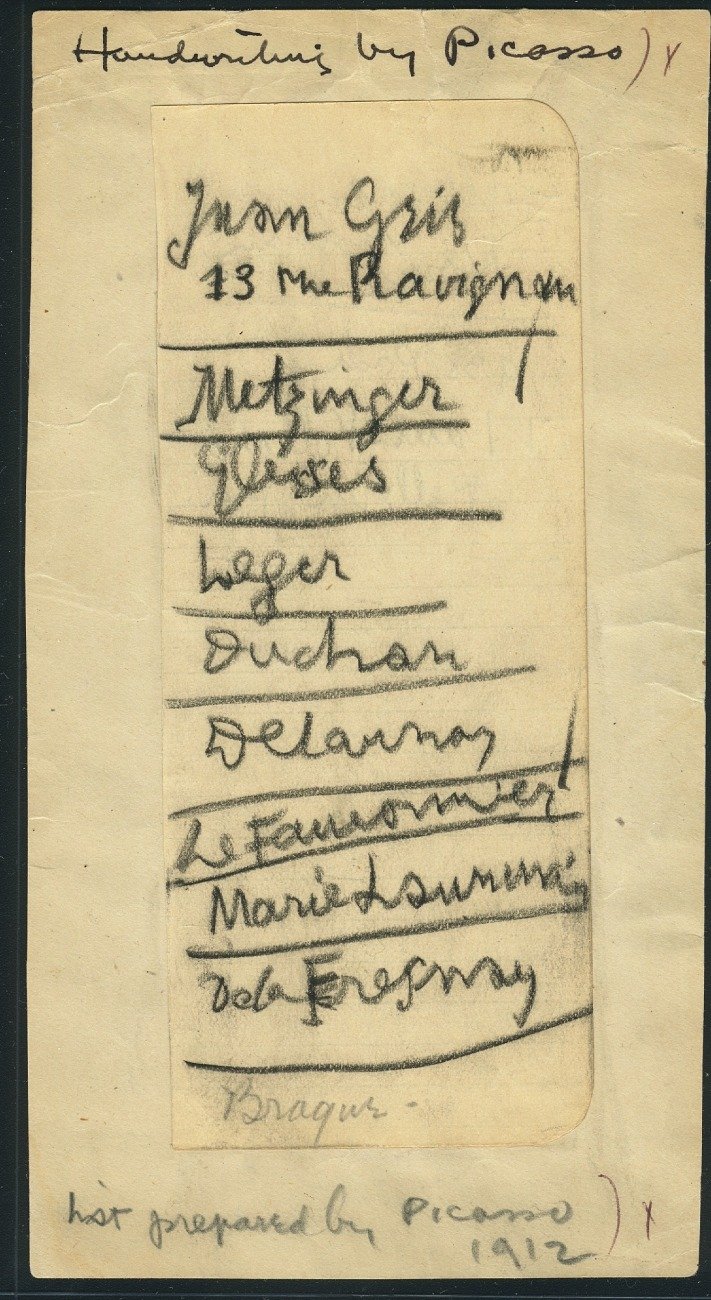 Handwriting by Picasso) x
Juan Gris
13 rue Ravignan
Metzinger
Gleises
Leger
Duchan
Delaunay
Le Fauconnier
Marie Laurencin
De la Fresnay
Braque -
List prepared by Picasso ) x
1912